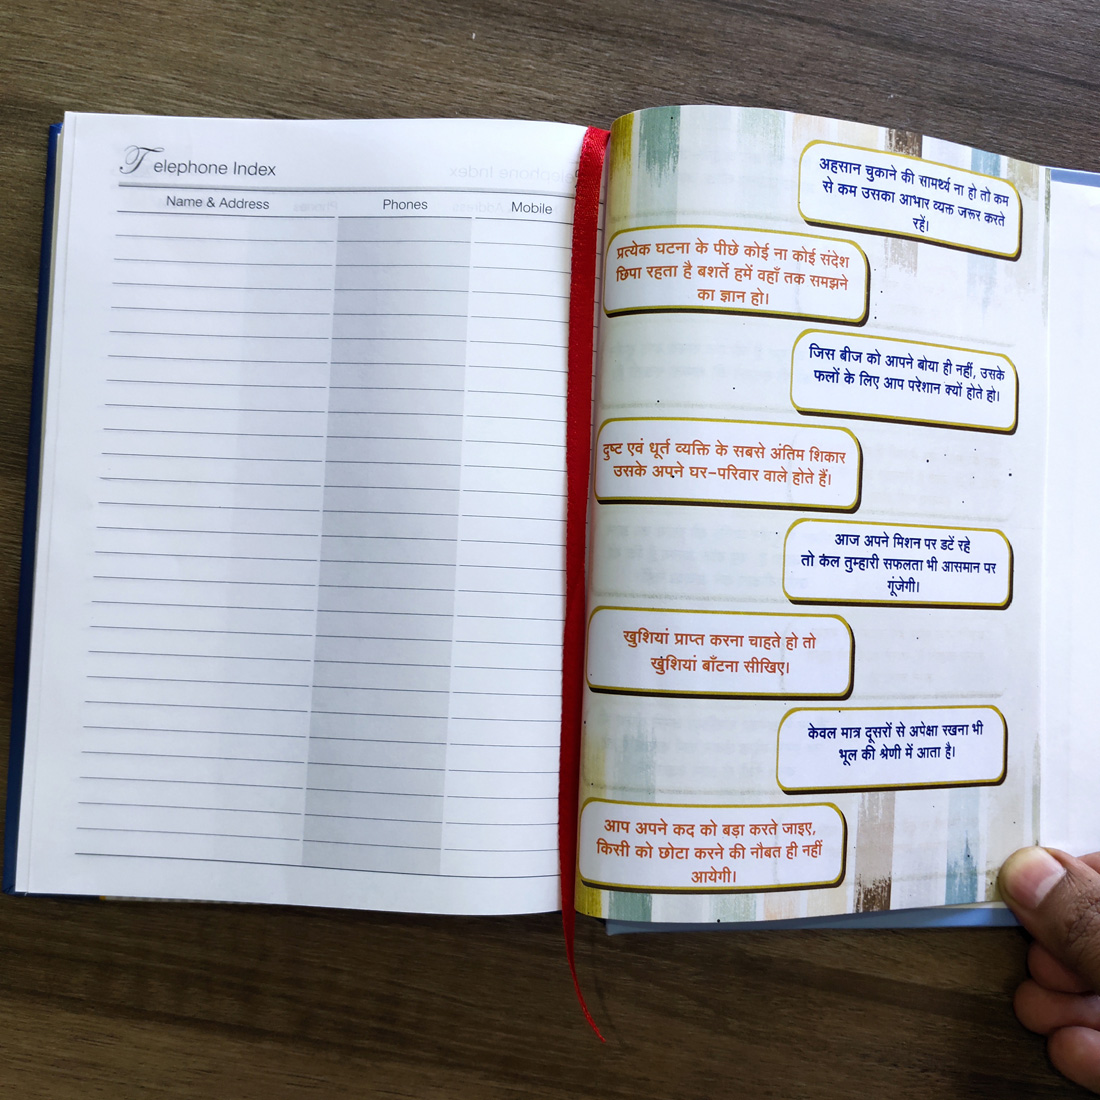 Telephone Index
Name & Address
Phones
Mobile
अहसान चुकाने की सामर्थ्य ना हो तो कम
से कम उसका आभार व्यक्त जरूर करते
रहें।
प्रत्येक घटना के पीछे कोई ना कोई संदेश
छिपा रहता है बशर्ते हमें वहाँ तक समझने
का ज्ञान हो।
जिस बीज को आपने बोया ही नहीं, उसके
फलों के लिए आप परेशान क्यों होते हो।
दुष्ट एवं धूर्त व्यक्ति के सबसे अंतिम शिकार
उसके अपने घर-परिवार वाले होते हैं।
आज अपने मिशन पर डटें रहे
तो कल तुम्हारी सफलता भी आसमान पर
गूंजेगी।
खुशियां प्राप्त करना चाहते हो तो
खुशियां बाँटना सीखिए।
केवल मात्र दूसरों से अपेक्षा रखना भी
भूल की श्रेणी में आता है।
आप अपने कद को बड़ा करते जाइए,
किसी को छोटा करने की नौबत ही नहीं
आयेगी।